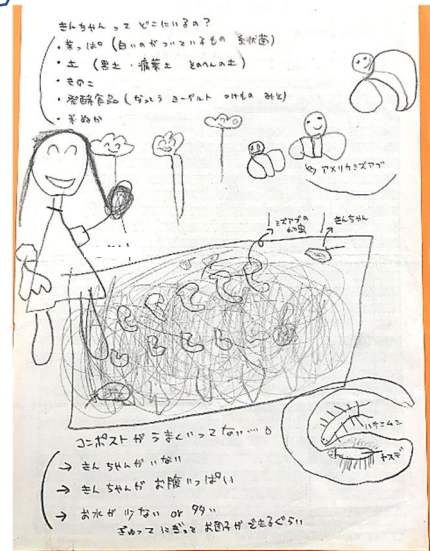 きんちゃん って どこにいるの？
・葉っぱ（白いのがついているもの 糸状菌）
・土（黒土・腐葉土 そのへんの土）
・きのこ
・発酵食品（なっとう ヨーグルト つけもの みそ）
・米ぬか
アメリカミズアブ
ミズアブの
幼虫
きんちゃん
コンポストが うまくいってない…。
→ きんちゃんがいない
→ きんちゃんが お腹いっぱい
→ お水が 少ない or 多い
ぎゅって にぎって お団子ができるぐらい
ハサミムシ
ヤスデ